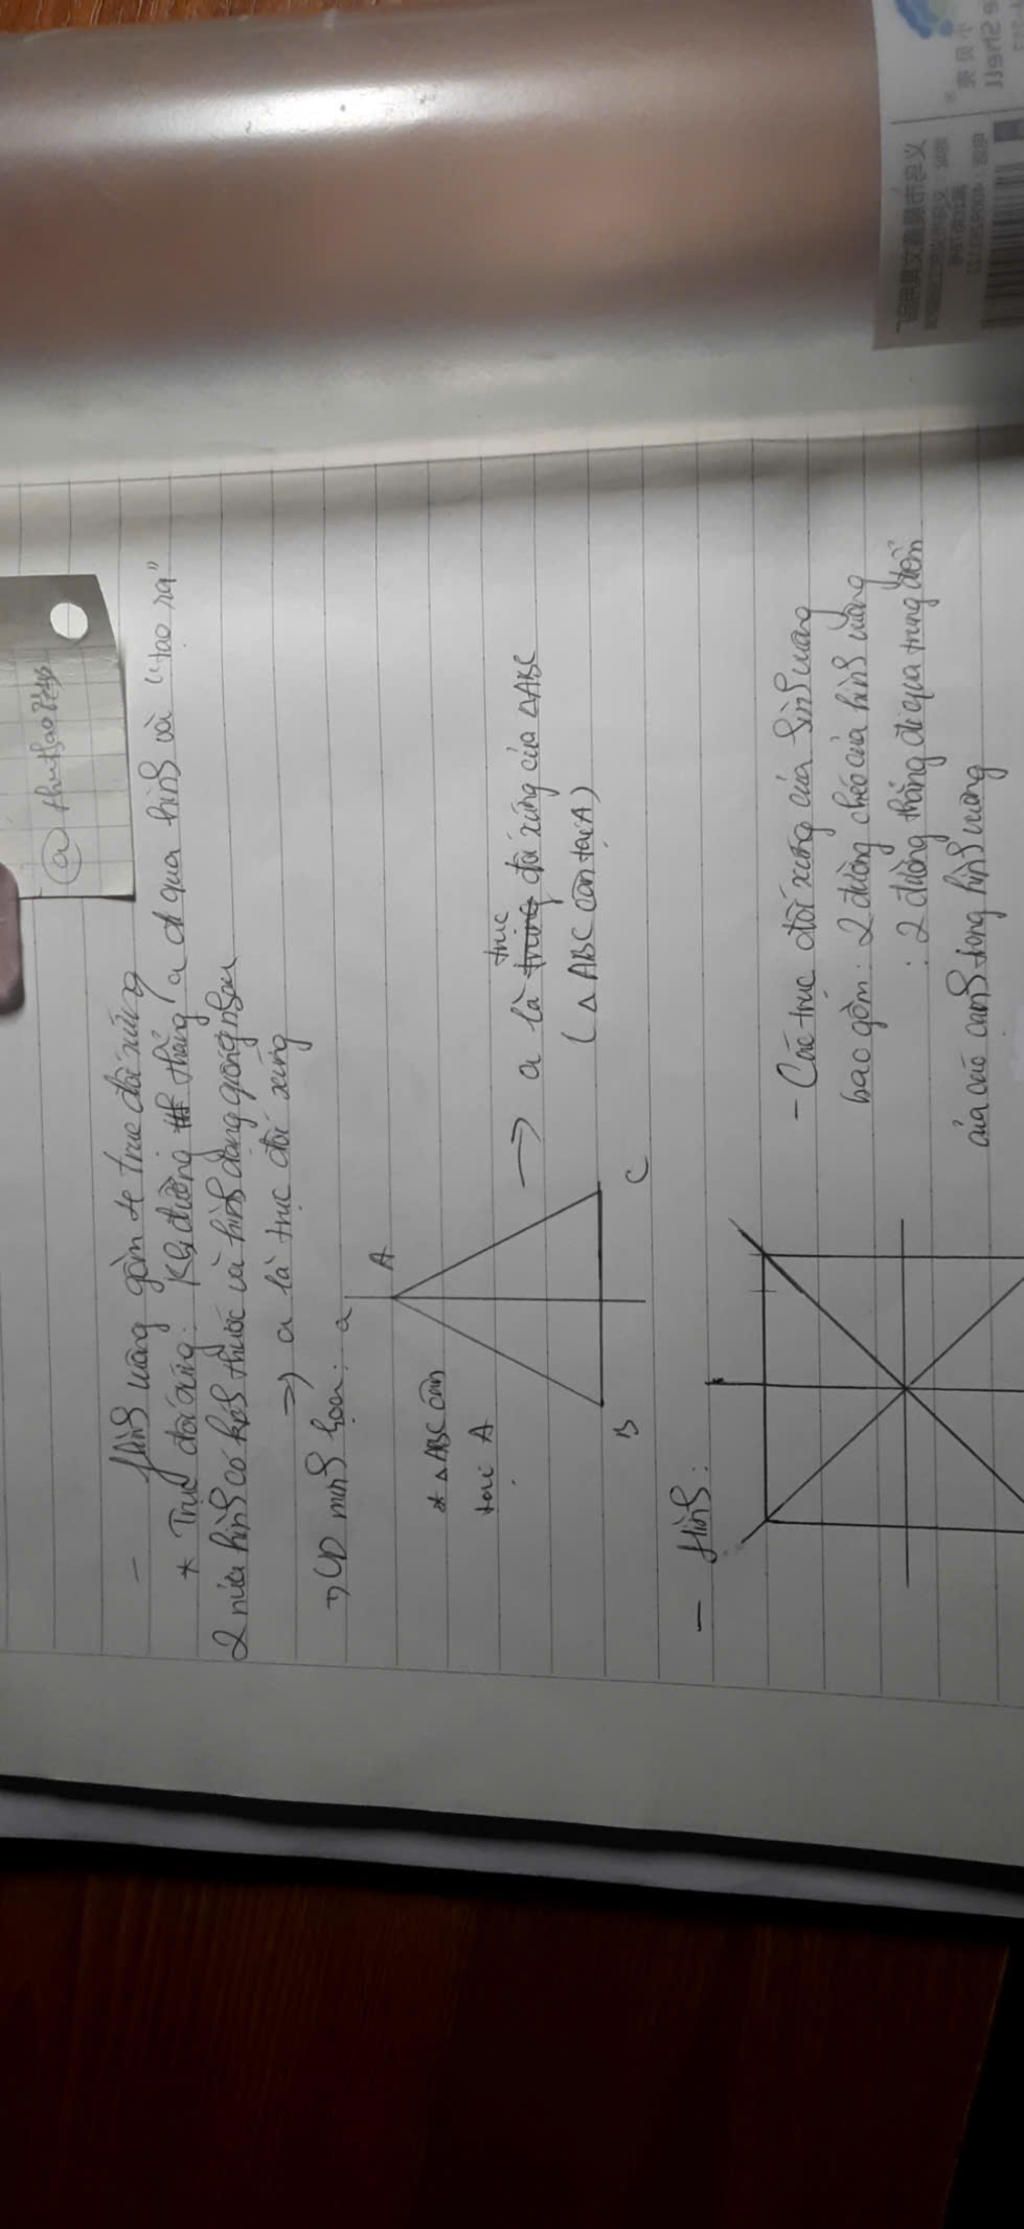 @ thuthao
- Hình vuông gồm 4 trục đối xứng
* Trục đối xứng: Khi đường thẳng a đi qua hình và "tạo ra"
2 nửa hình có kích thước và hình dạng giống nhau
=> a là trục đối xứng
VD minh họa:
a
A
* △ABC cân
tại A
B
C
→ a là trục đối xứng của △ABC
(△ABC cân tại A)
- Hình:
- Các trục đối xứng của hình vuông
bao gồm: 2 đường chéo của hình vuông
: 2 đường thẳng đi qua trung điểm
của các cạnh trong hình vuông